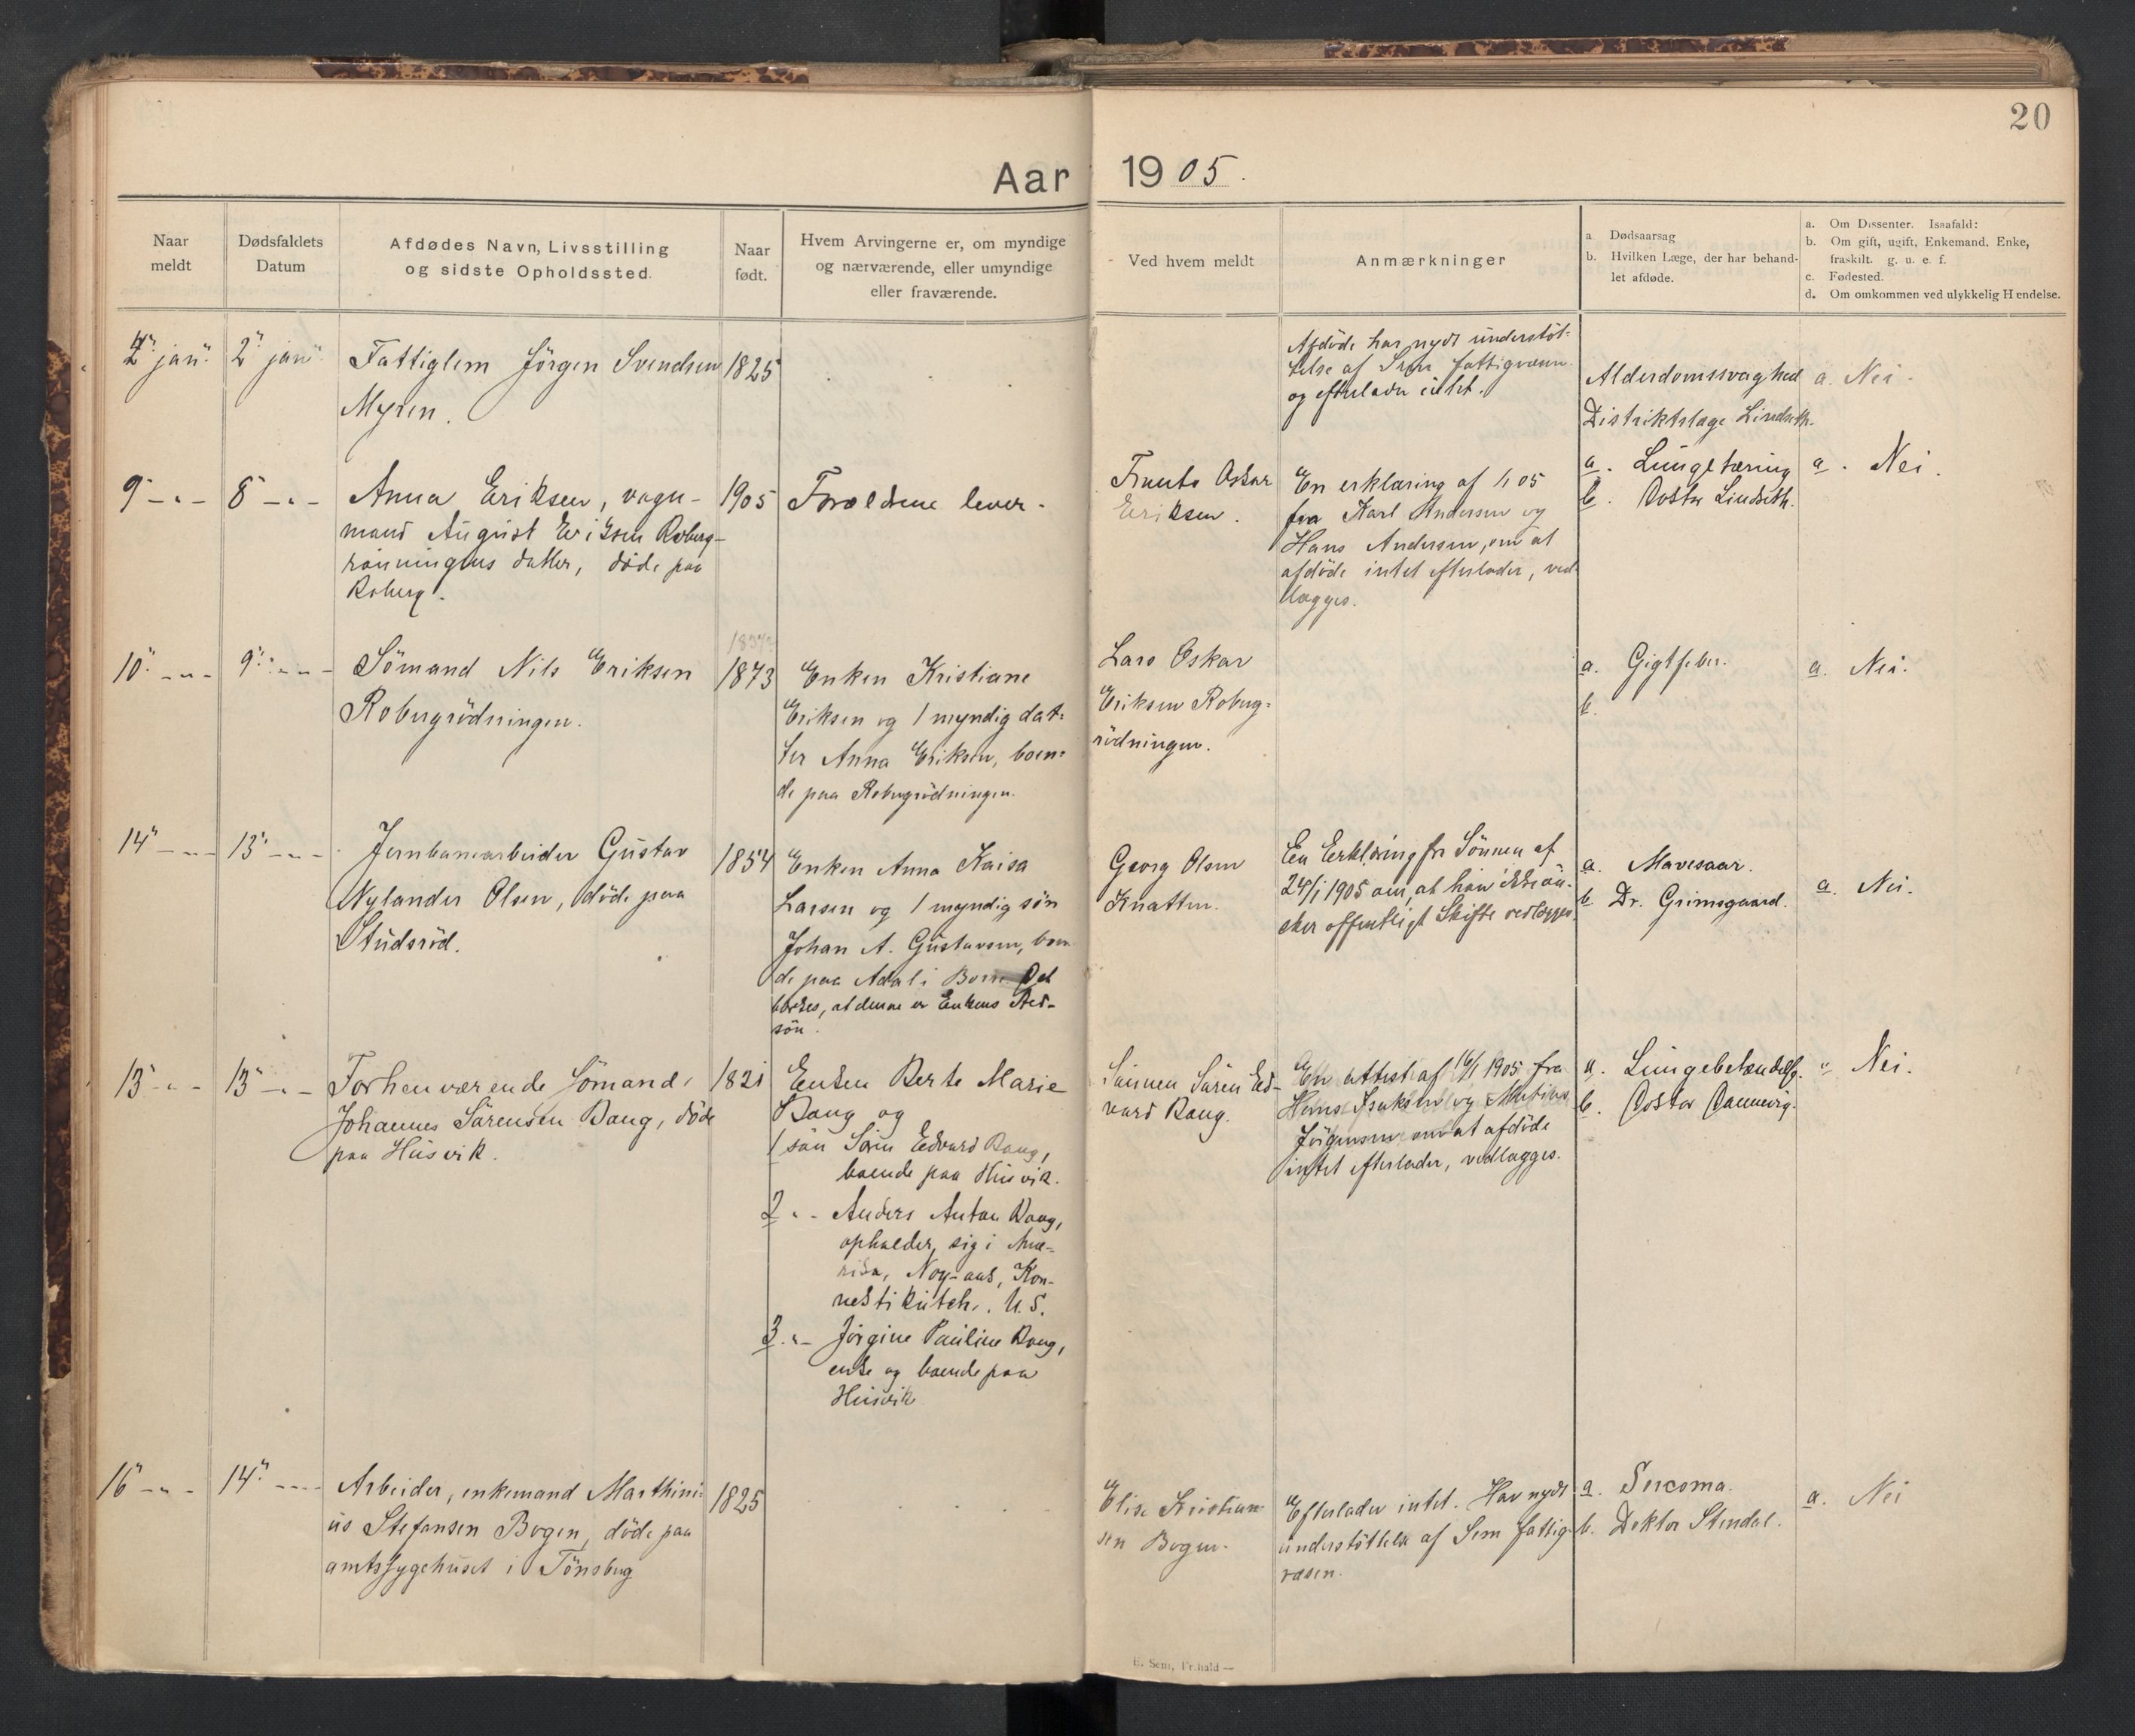 20
Aar 1905.
Naar
meldt
Dødsfaldets
Datum
Afdødes Navn, Livsstilling
og sidste Opholdssted.
Naar
født.
Hvem Arvingerne er, om myndige
og nærværende, eller umyndige
eller fraværende.
Ved hvem meldt
Anmærkninger
a Dødsaarsag
b. Hvilken Læge, der har behand-
let afdøde.
a. Om Dissenter. Isaafald:
b. Om gift, ugift, Enkemand. Enke,
fraskilt. g. u. e. f.
c. Fødested.
d. Om omkommen ved ulykkelig Hændelse.
jan. 2 jan. Fattiglem Jörgen Svendsen 1825
Myren.
Afdöde har nydt understöt-
telse af Sem fattigvæsen
og efterlader intet.
Alderdomssvaghed
Distriktslæge Lindseth.
a. Nei.
9 - " - 8 - " - Anna Eriksen, vogn- 1905 Forældrene lever.
mand August Eriksen Roberg-
rönningens datter, döde paa
Roberg.
Oskar
Eriksen.
En erklæring af 05
fra Karl Andersen og
Hans Andersen, om at
afdöde intet efterlader, ved-
lægges.
a. Lungetæring
b. Doktor Lindseth.
a. Nei.
10 - " - 9 - " - Sömand Nils Eriksen 1873
Robergrödningen.
Enken Kristiane
Eriksen og 1 myndig dat-
ter Anna Eriksen, boen-
de paa Robergrödningen.
Lars Oskar
Eriksen Roberg-
rödningen.
a. Gigtfeber.
b.
a. Nei.
14 - " - 13 - " - Jernbanearbeider Gustav 1854
Nylander Olsen, döde paa
Studsröd.
Enken Anna Kaisa
Larsen og 1 myndig sön
Johan A. Gustavsen, boen-
de paa Adal i Borre Det
at denne er Enkens Sted-
sön.
Georg Olsen
Knatten.
En Erklæring fra Sönnen af
24/1 1905 om, at han ikke ön-
sker offentligt Skifte vedlægges.
a. Mavesaar.
b. Dr. Grimsgaard.
a. Nei.
13 - " - 13 - " - Forhenværende Sömand 1821
Johannes Sörensen Bang, döde
paa Husvik.
Enken Berte Marie
Bang og
1 sön Sören Edvard Bang,
boende paa Husvik.
2 " - Anders Anton Bang,
opholder sig i Ame-
rika, Kon-
nektikutch. U. S.
3 " - Jörgine Pauline Bang,
enke og boende paa
Husvik
Sönnen Sören Ed-
vard Bang.
En attest af 16/1 1905 fra
Hans Isaksen og
Jörgensen om at afdöde
intet efterlader, vedlægges.
a. Lungebetændelse.
b. Doktor Dannevig.
" Nei.
16 - " - 14 - " - Arbeider, enkemand Marthini- 1825
us Stefansen Bogen, döde paa
amtssygehuset i Tönsberg
Elise Kristian-
sen Bogen.
Efterlader intet. Har nydt
understöttelse af Sem fattig-
væsen.
a.
b. Doktor Stendal.
a. Nei
E. Sem, Fr.hald —